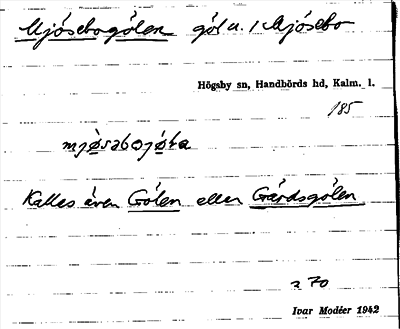 Mjösebogölen göl u. Mjösebo
Högsby sn, Handbörds hd, Kalm. l.
185
Kallas även Gölen eller Gårdsgölen
2 70
Ivar Modéer 1942